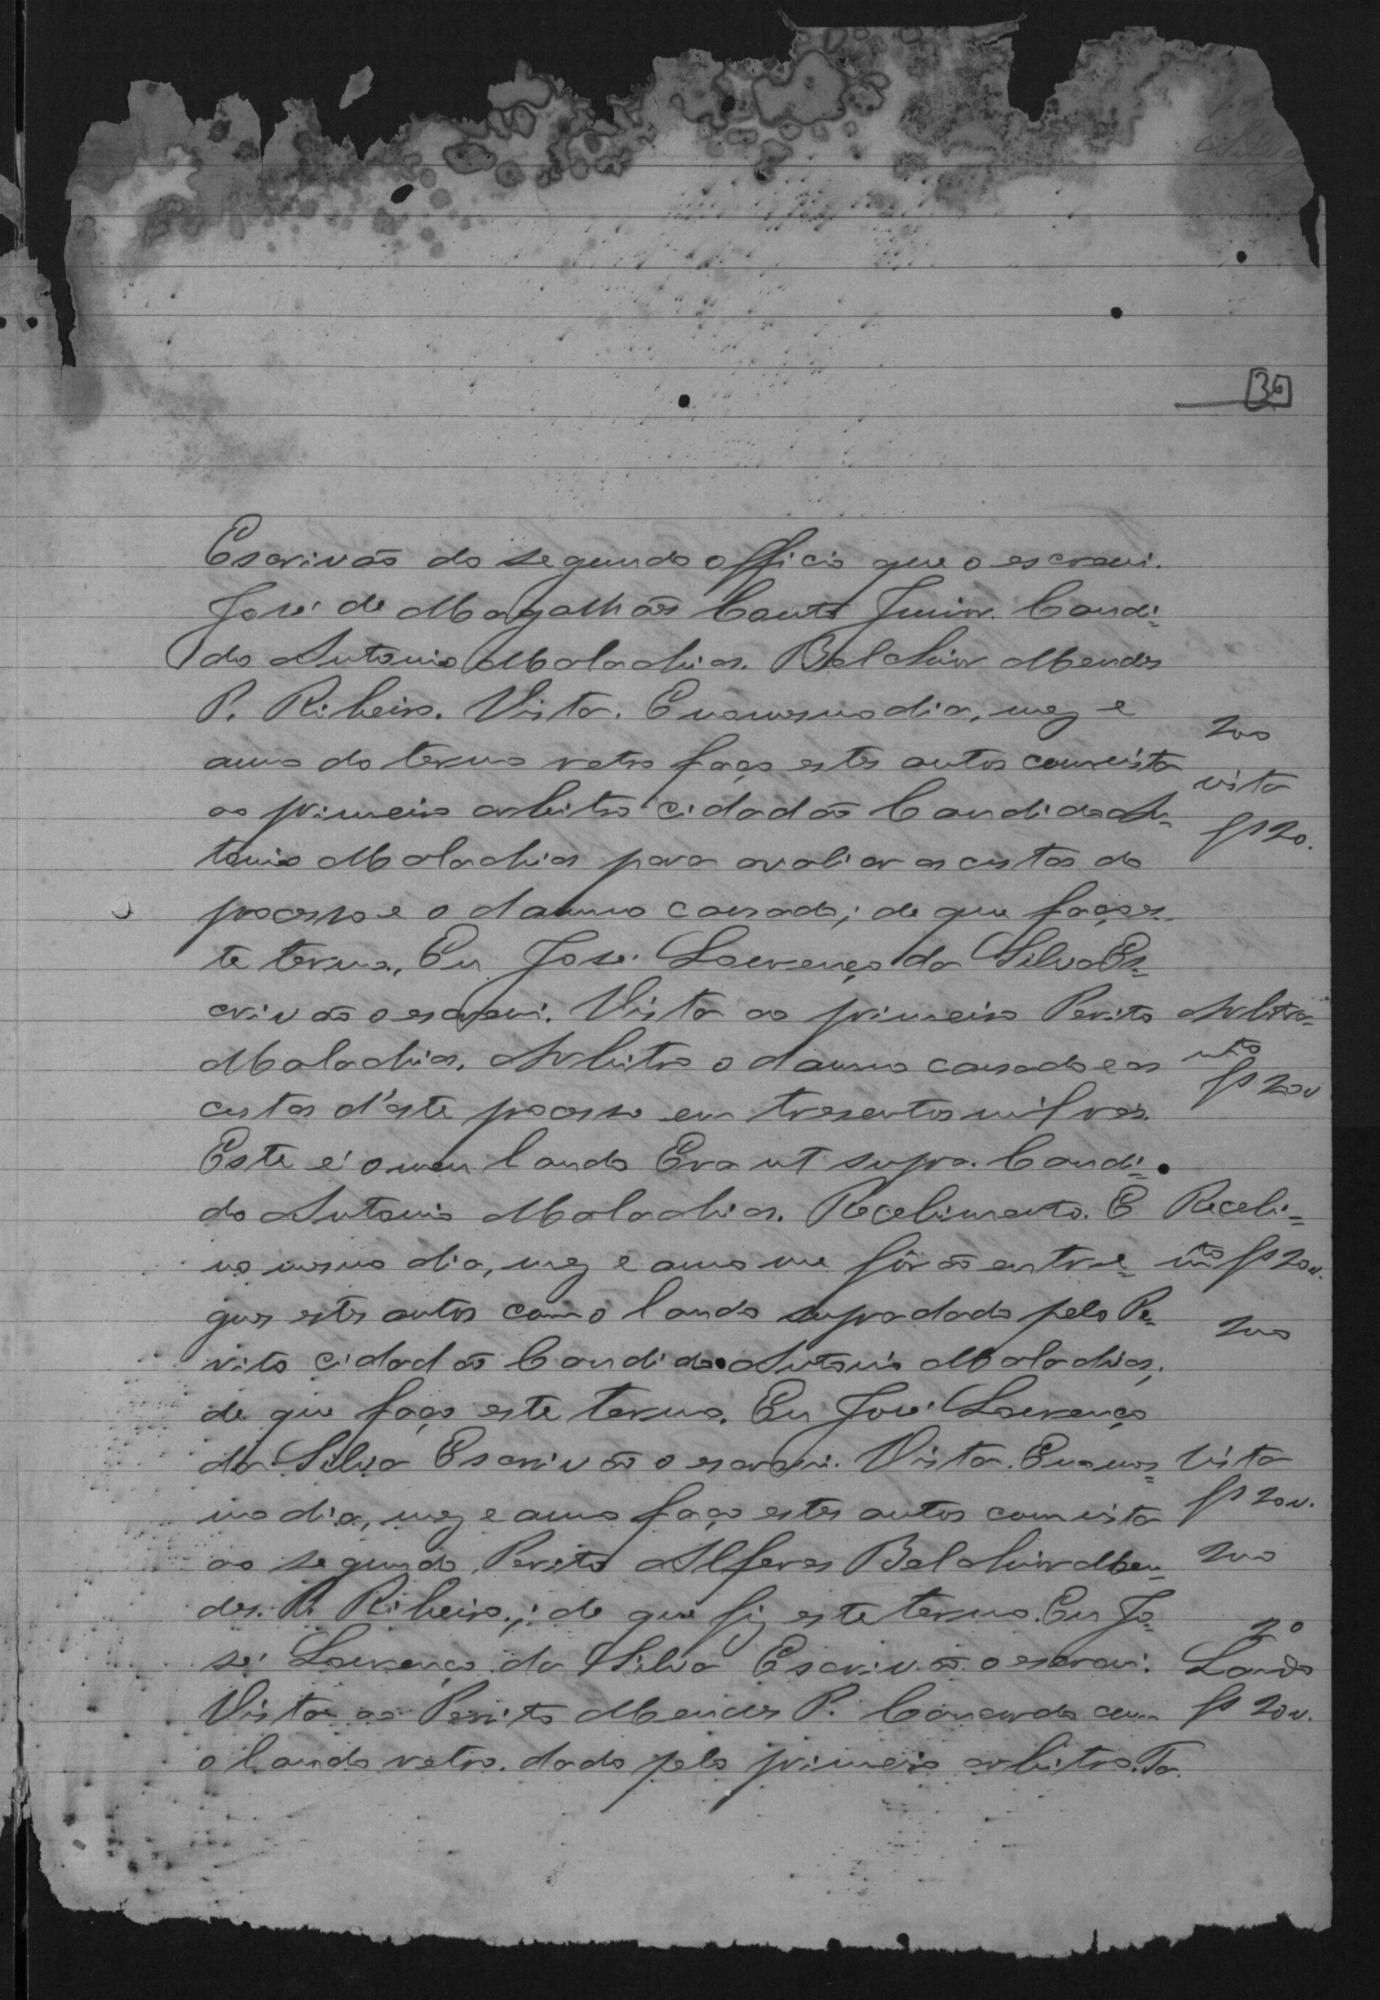 36
Escrivão do segundo officio que o escrevi.
José de Magalhães Couto Junior. Candi=
do Antonio Malachias. Belchior Mendes
P. Ribeiro. Vista. E no mesmo dia, mez e
anno do termo retro faço estes autos com vista
ao primeiro arbitro cidadão Candido An=
tonio Malachias para avaliar as custas do
processo e o damno causado; de que faço es=
te termo. Eu José Lourenço da Silva Es=
crivão o escrevi. Vista ao primeiro Perito
Malachias. Arbitro o damno causado e as
custas d'este processo em tresentos mil reis.
Este é o meu laudo Era ut supra. Candi=
do Antonio Malachias. Recebimento. E
no mesmo dia, mez e anno me fôrão entre=
gues estes autos com o laudo supra dado pelo Pe=
rito cidadão Candido Antonio Malachias,
de que faço este termo. Eu José Lourenço
da Silva Escrivão o escrevi. Vista. E no mes=
mo dia, mez e anno faço estes autos com vista
ao segundo Perito Alferes Belchior Men=
des P. Ribeiro; de que fiz este termo. Eu Jo=
sé Lourenço da Silva Escrivão o escrevi.
Vista ao Perito Mendes P. Concordo com
o laudo retro dado pelo primeiro arbitro. Ta
200
vista
fs 20.
Arbitra=
mto
fs 20v
Recebi=
mto fs 20v.
200
Vista
fs 20v.
200
2º
Laudo
fs 20v.